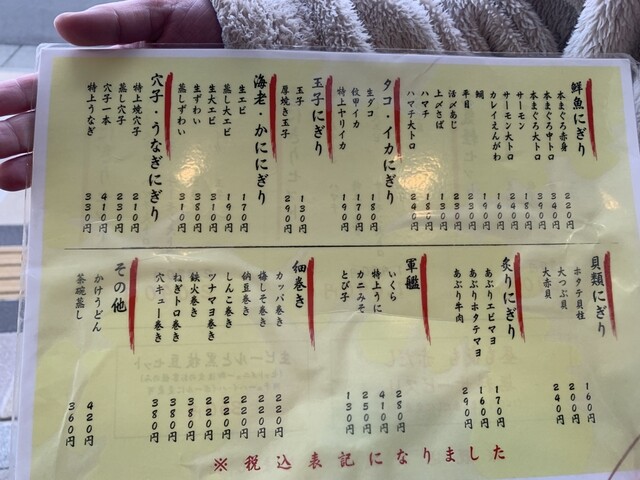 鮮魚にぎり
本まぐろ赤身 220円
本まぐろ中トロ 340円
本まぐろ大トロ 390円
サーモン 180円
サーモン大トロ 240円
カレイえんがわ 190円
鯛 160円
平目 230円
活〆あじ 230円
上〆さば 130円
ハマチ 180円
ハマチ大トロ 240円
タコ・イカにぎり
生ダコ 180円
紋甲イカ 170円
特上ヤリイカ 190円
玉子にぎり
玉子 130円
厚焼き玉子 290円
海老・かににぎり
生エビ 170円
蒸し大エビ 190円
生大エビ 310円
生ずわい 380円
蒸しずわい 310円
穴子・うなぎにぎり
特上焼穴子 210円
蒸し穴子 230円
穴子一本 410円
特上うなぎ 330円
貝類にぎり
ホタテ貝柱 160円
大つぶ貝 200円
大赤貝 240円
炙りにぎり
あぶりエビマヨ 170円
あぶりホタテマヨ 160円
あぶり牛肉 290円
軍艦
いくら 280円
特上うに 410円
カニみそ 250円
とび子 130円
細巻き
カッパ巻き 220円
梅しそ巻き 220円
納豆巻き 220円
しんこ巻き 220円
ツナマヨ巻き 220円
鉄火巻き 380円
ねぎトロ巻き 380円
穴キュー巻き 380円
その他
かけうどん 420円
茶碗蒸し 360円
※税込表記になりました